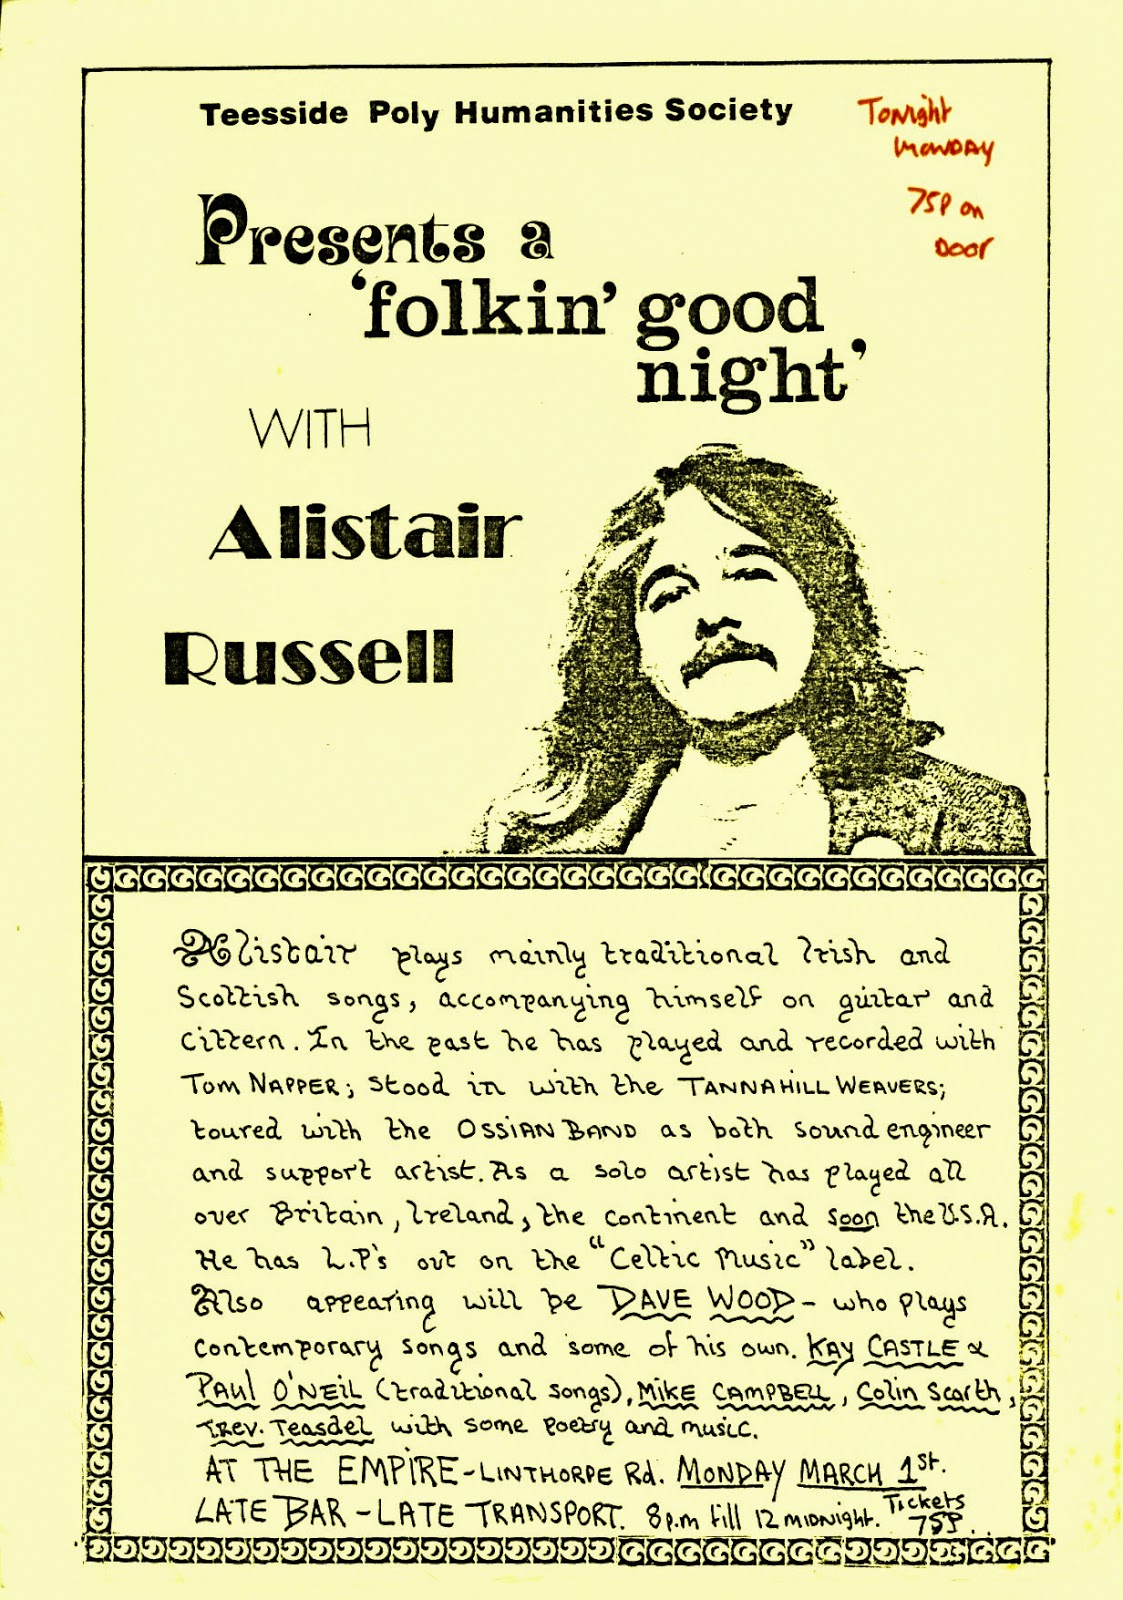 Teesside Poly Humanities Society
Tonight
MONDAY
75P on
DOOR
Presents a
'folkin' good
night'
WITH
Alistair
Russell
Alistair plays mainly traditional Irish and
Scottish songs, accompanying himself on guitar and
cittern. In the past he has played and recorded with
TOM NAPPER; stood in with the TANNAHILL WEAVERS;
toured with the OSSIAN BAND as both sound engineer
and support artist. As a solo artist has played all
over Britain, Ireland, the continent and soon the U.S.A.
He has L.P's out on the "Celtic Music" label.
Also appearing will be DAVE WOOD - who plays
contemporary songs and some of his own. KAY CASTLE &
PAUL O'NEIL (traditional songs), MIKE CAMPBELL, Colin Scarth,
Trev. Teasdel with some poetry and music.
AT THE EMPIRE - LINTHORPE Rd. MONDAY MARCH 1st.
LATE BAR - LATE TRANSPORT. 8p.m till 12 MIDNIGHT. Tickets
75P.